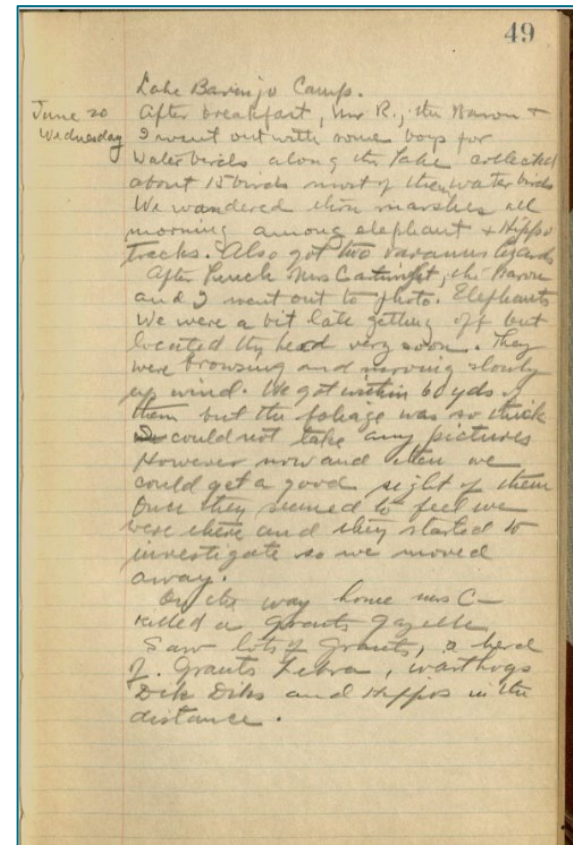 49
Lake Baringo Camp.
June 20
Wednesday
After breakfast, Mr R., the Baron +
I went out with some boys for
Water birds along the lake collected
about 15 birds most of them water birds
We wandered thru marshes all
morning among elephant + Hippo
tracks. Also got two varanus lizards
After lunch Mrs Cartwright, the Baron
and I went out to photo. Elephants
We were a bit late getting off but
located the herd very soon. They
were browsing and moving slowly
up wind. We got within 60 yds of
them but the foliage was so thick
could not take any pictures
However now and then we
could get a good sight of them
Once they seemed to feel we
were there and they started to
investigate so we moved
away.
On the way home Mrs C—
killed a Grants gazelle
Saw lots of Grants, a herd
of Grants Zebra, warthogs
Dik Diks and Hippos in the
distance.